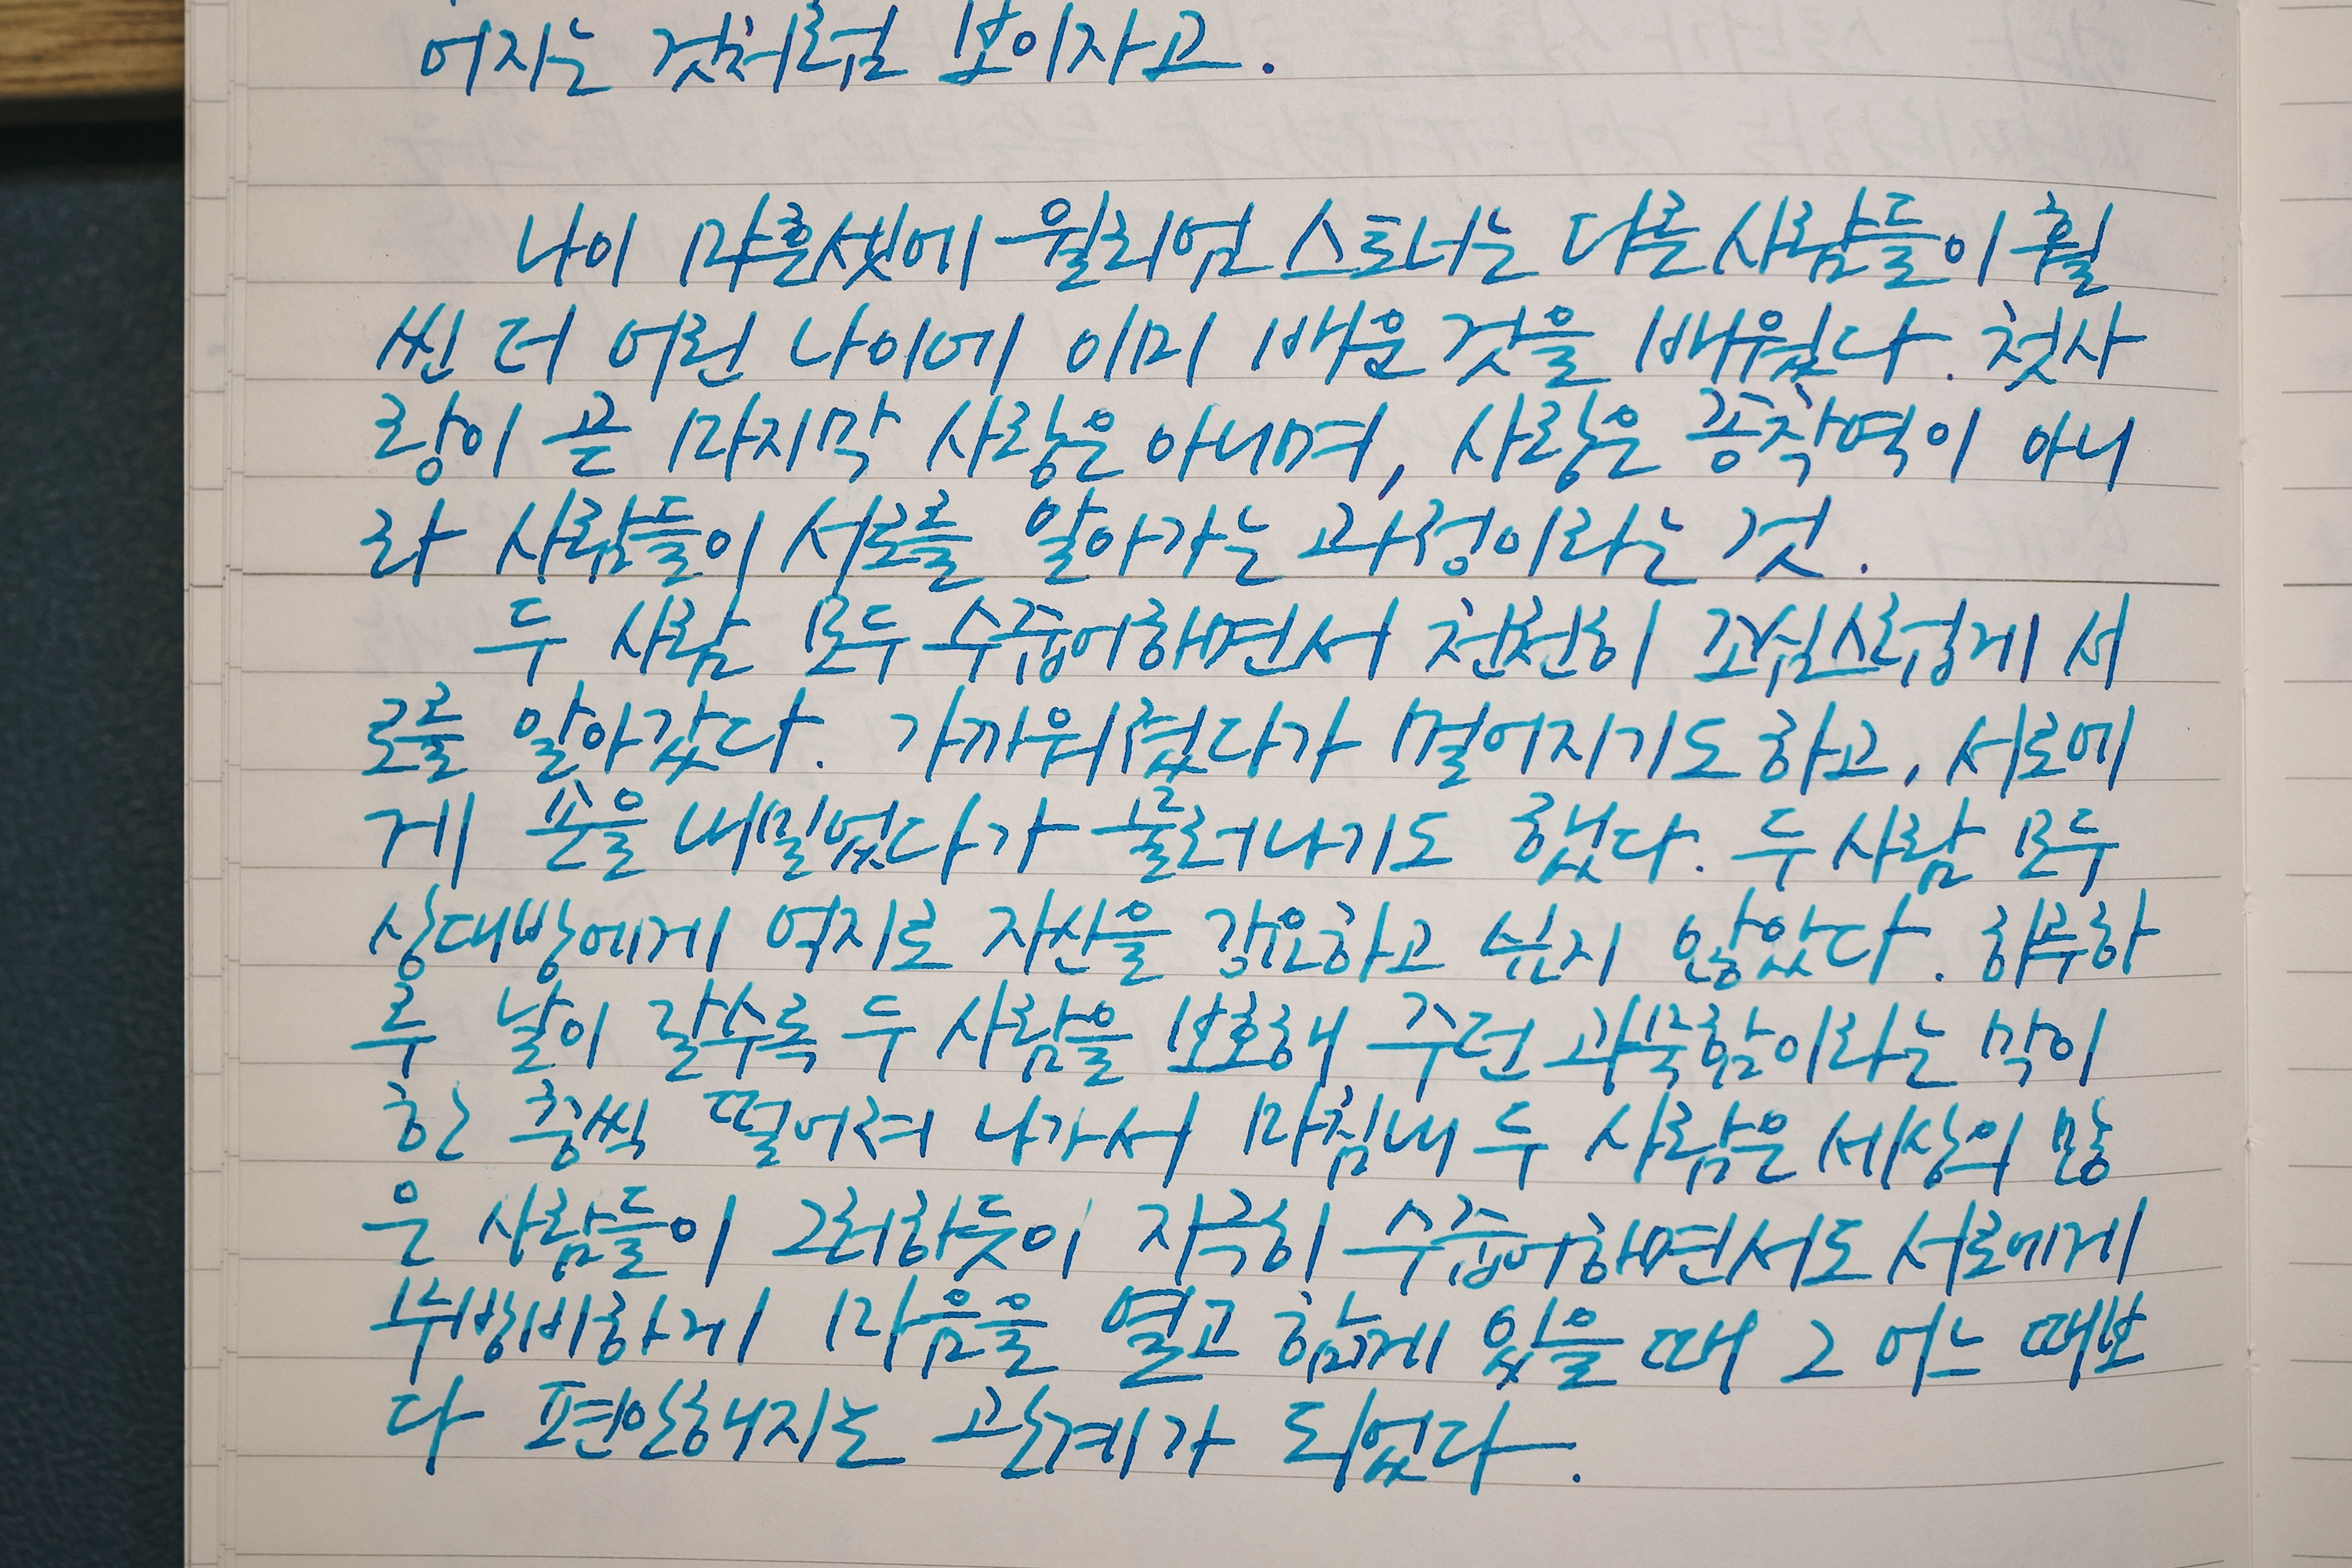 어지는 것처럼 보이자고.
나이 마흔셋에 윌리엄 스토너는 다른 사람들이 훨
씬 더 어린 나이에 이미 배운 것을 배웠다. 첫사
랑이 곧 마지막 사랑은 아니며, 사랑은 종착역이 아니
라 사람들이 서로를 알아가는 과정이라는 것.
두 사람 모두 수줍어하면서 천천히 조심스럽게 서
로를 알아갔다. 가까워졌다가 멀어지기도 하고, 서로에
게 손을 내밀었다가 물러나기도 했다. 두 사람 모두
상대방에게 억지로 자신을 강요하고 싶지 않았다. 하루하
루 날이 갈수록 두 사람을 보호해 주던 과묵함이라는 막이
한 층씩 떨어져 나가서 마침내 두 사람은 세상의 많
은 사람들이 그러하듯이 지극히 수줍어하면서도 서로에게
무방비하게 마음을 열고 함께 있을 때 그 어느 때보
다 편안해지는 관계가 되었다.